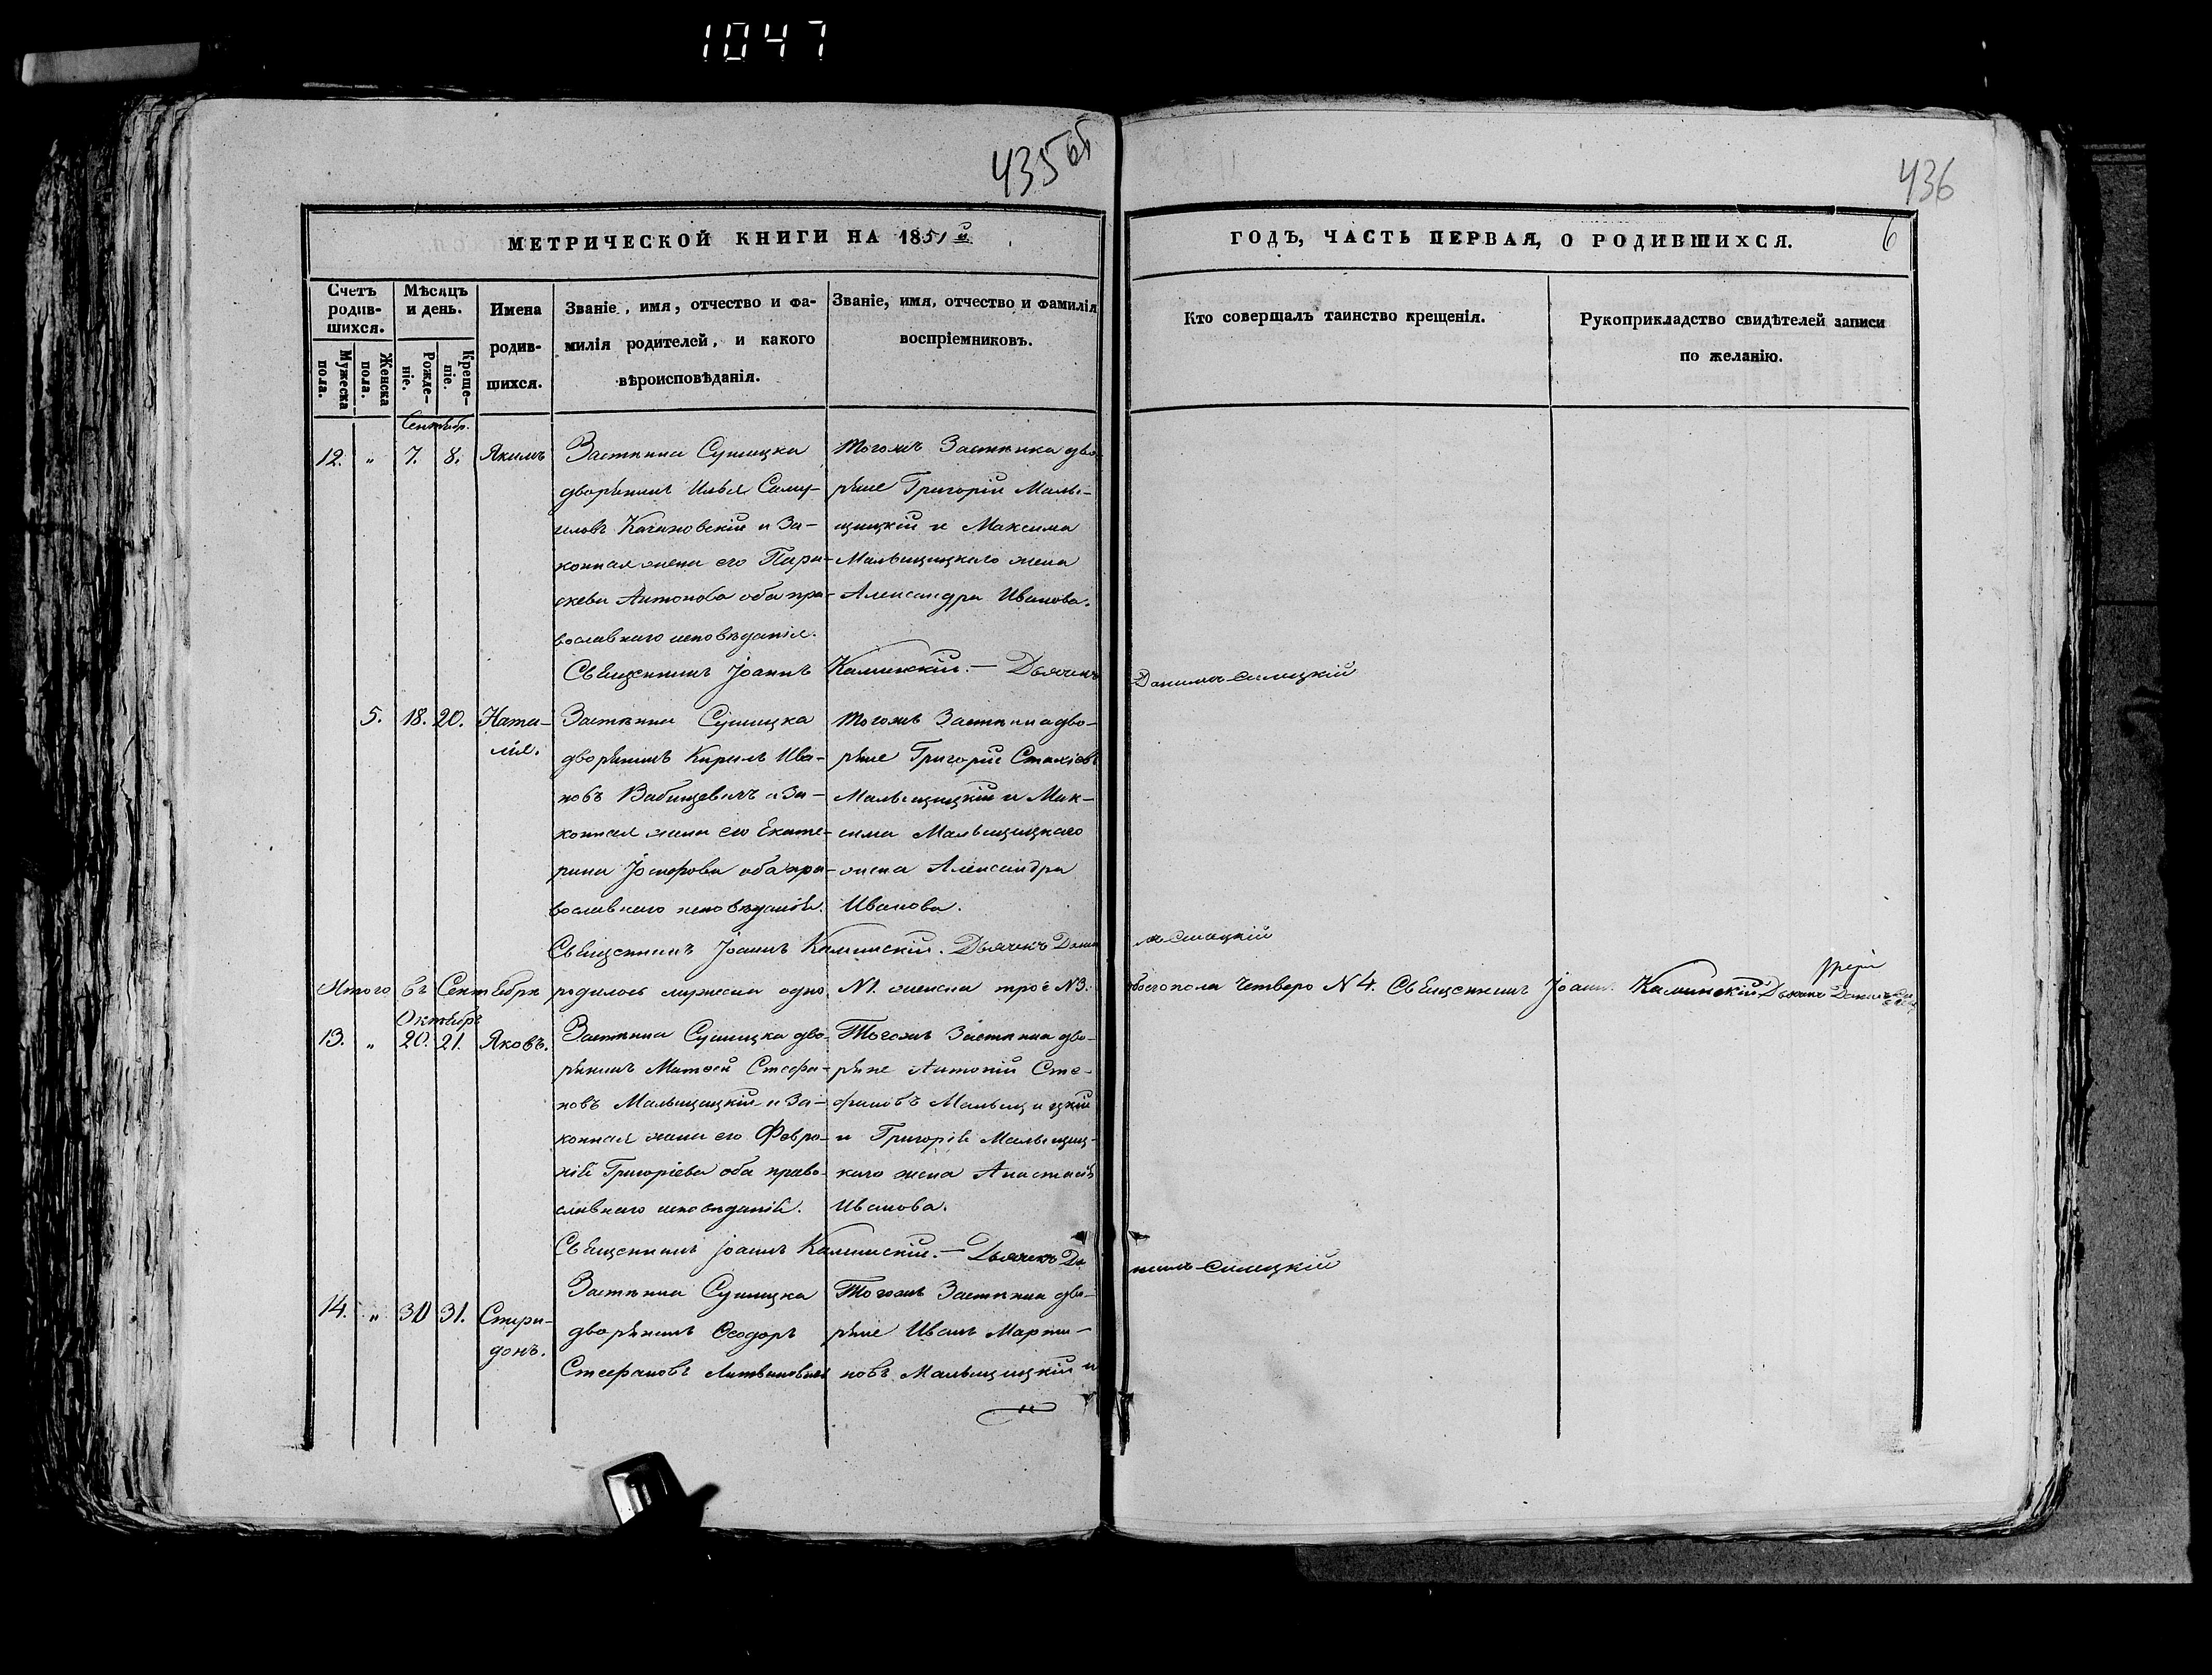 1047
435об
436
МЕТРИЧЕСКОЙ КНИГИ НА 1851й
ГОДЪ, ЧАСТЬ ПЕРВАЯ, О РОДИВШИХСЯ.
6
Счетъ родив-шихся.
Мужеска пола.
Женска пола.
Мѣсяцъ и день.
Рожде-ніе.
Креще-ніе.
Имена родив-шихся.
Званіе, имя, отчество и фа-
милія родителей, и какого
вѣроисповѣданія.
Званіе, имя, отчество и фамилія
воспріемниковъ.
Кто совершалъ таинство крещенія.
Рукоприкладство свидѣтелей записи
по желанію.
Сентябр.
12. " 7. 8. Якимъ
Застѣнка Сушицка
дворянинъ Илья Саму-
иловъ Качановскій и за-
конная жена его Пара-
скева Антонова оба пра-
вославнаго исповѣданія.
Тогожъ Застѣнка дво-
ряне Григорій Маль-
щицкій и Максима
Мальщицкаго жена
Александра Иванова.
Священникъ Іоаннъ Калинскій. — Дьячекъ
Данилъ Силицкій
5. 18. 20. Ната-
лія.
Застѣнка Сушицка
дворянинъ Кирилъ Ива-
новъ Вабищевичъ и за-
конная жена его Екате-
рина Іосифова оба пра-
вославнаго исповѣданія.
Тогожъ Застѣнка дво-
ряне Григорій Стахіевъ
Мальщицкій и Мак-
сима Мальщицкаго
жена Александра
Иванова.
Священникъ Іоаннъ Калинскій. Дьячекъ Дани
лъ Силицкій
Итого въ Сентябрѣ родилось мужеска одно N1. женска трое N3.
обоего пола четверо N4. Священникъ Іоаннъ Калинскій Дьячекъ Данилъ
Октябрь
13. " 20. 21. Яковъ.
Застѣнка Сушицка дво-
рянинъ Матѳей Стефа-
новъ Мальщицкій и за-
конная жена его Февро-
нія Григоріева оба право-
славнаго исповѣданія.
Тогожъ Застѣнка дво-
ряне Антоній Сте-
фановъ Мальщицкій
и Григорія Мальщиц-
каго жена Анастасія
Иванова.
Священникъ Іоаннъ Калинскій. — Дьячекъ Да
нилъ Силицкій
14. " 30 31. Спири-
донъ.
Застѣнка Сушицка
дворянинъ Ѳеодоръ
Стефановъ Литвиновичъ
Тогожъ Застѣнка дво-
ряне Иванъ Марти-
новъ Мальщицкій и